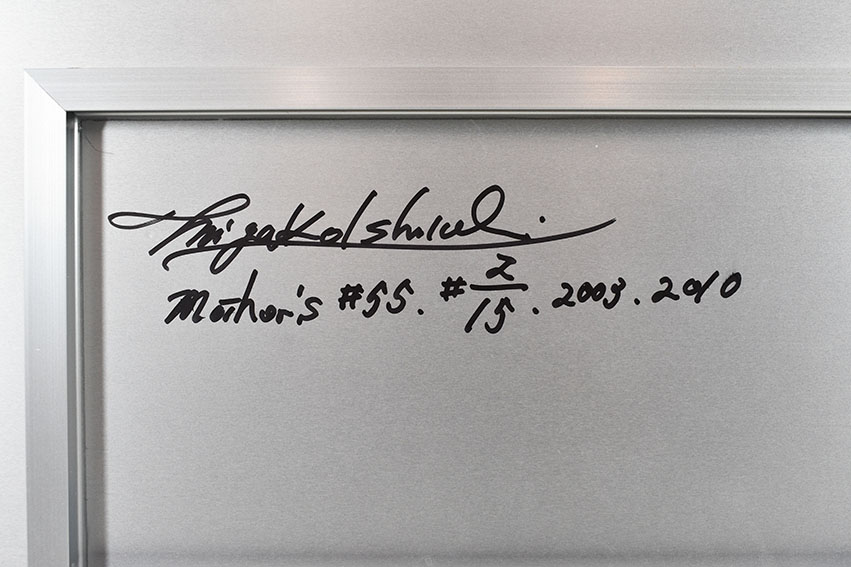 Miyako Ishiuchi.
Mother's #55. #2/15. 2003. 2010